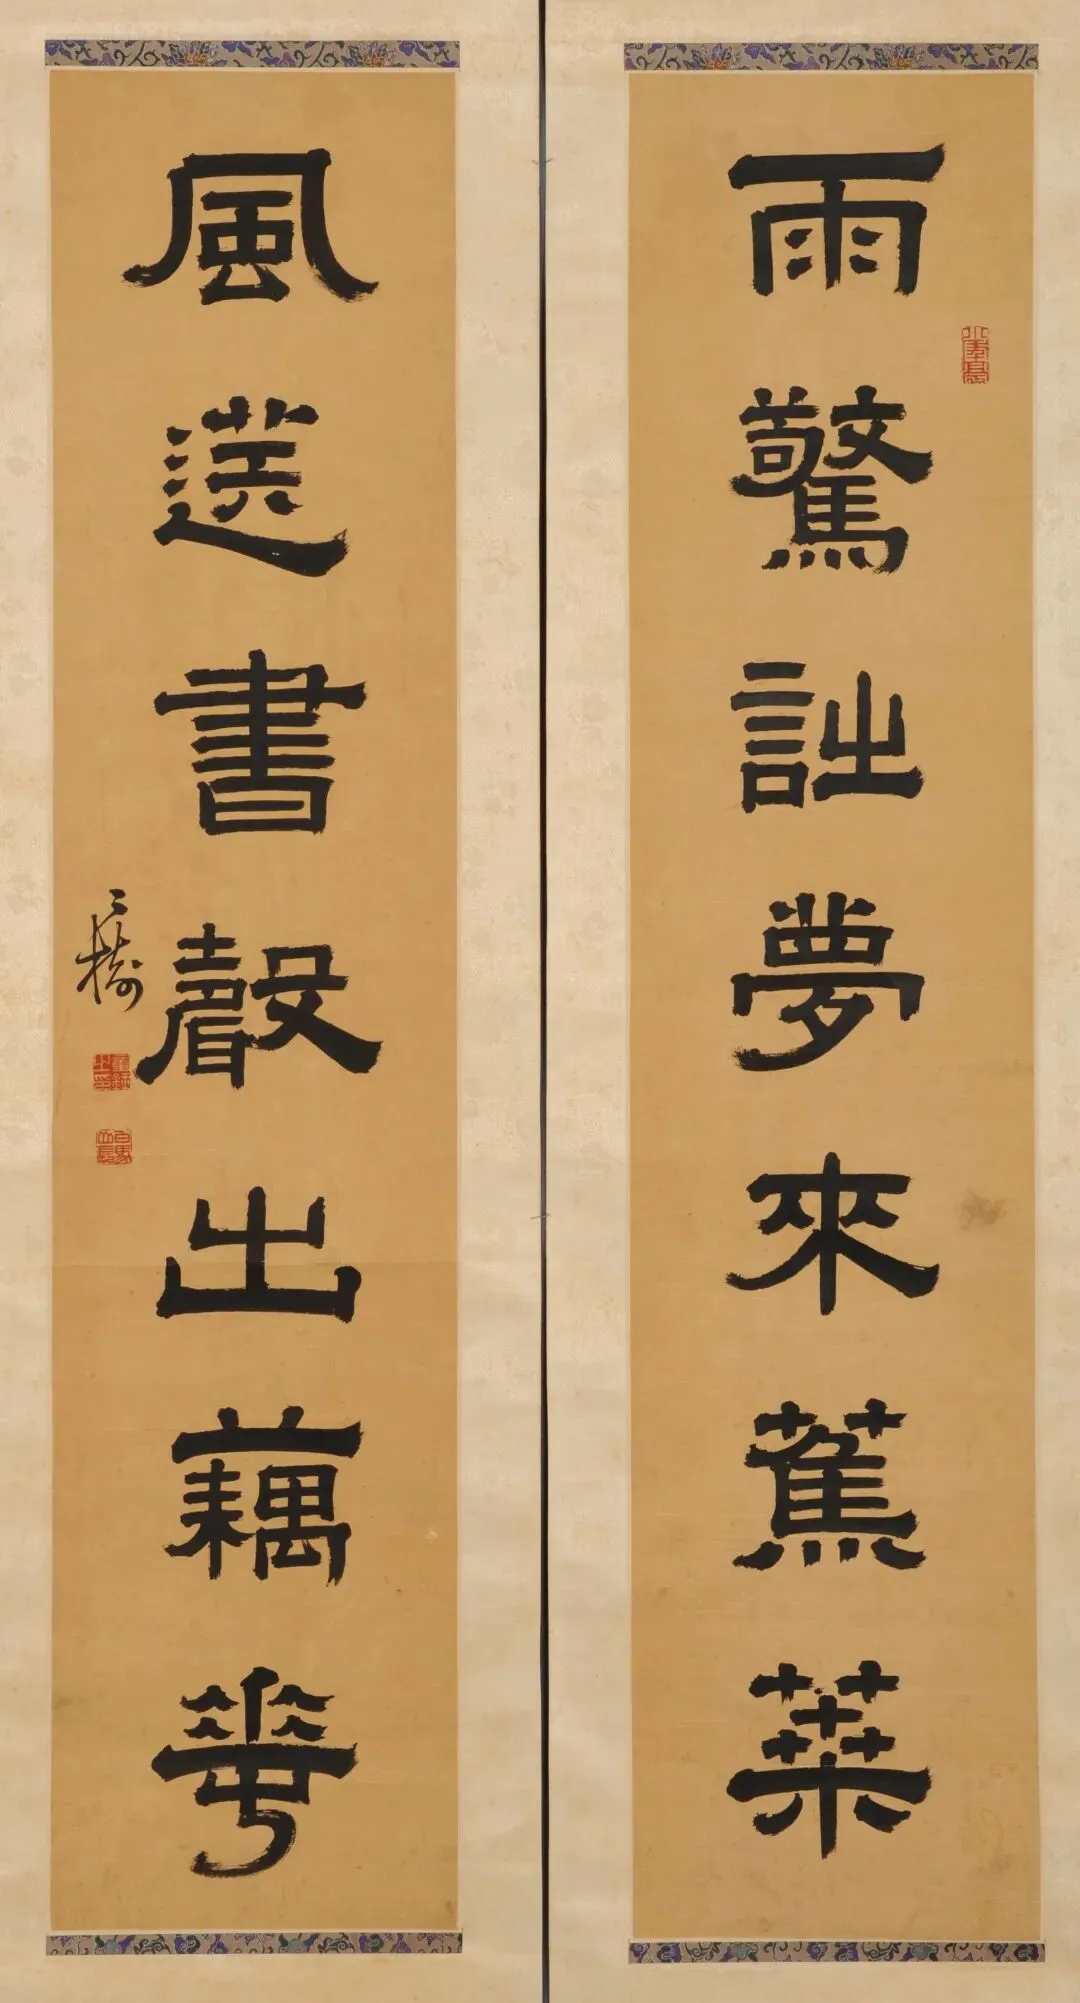 雨驚詩夢來蕉葉
風送書聲出藕花